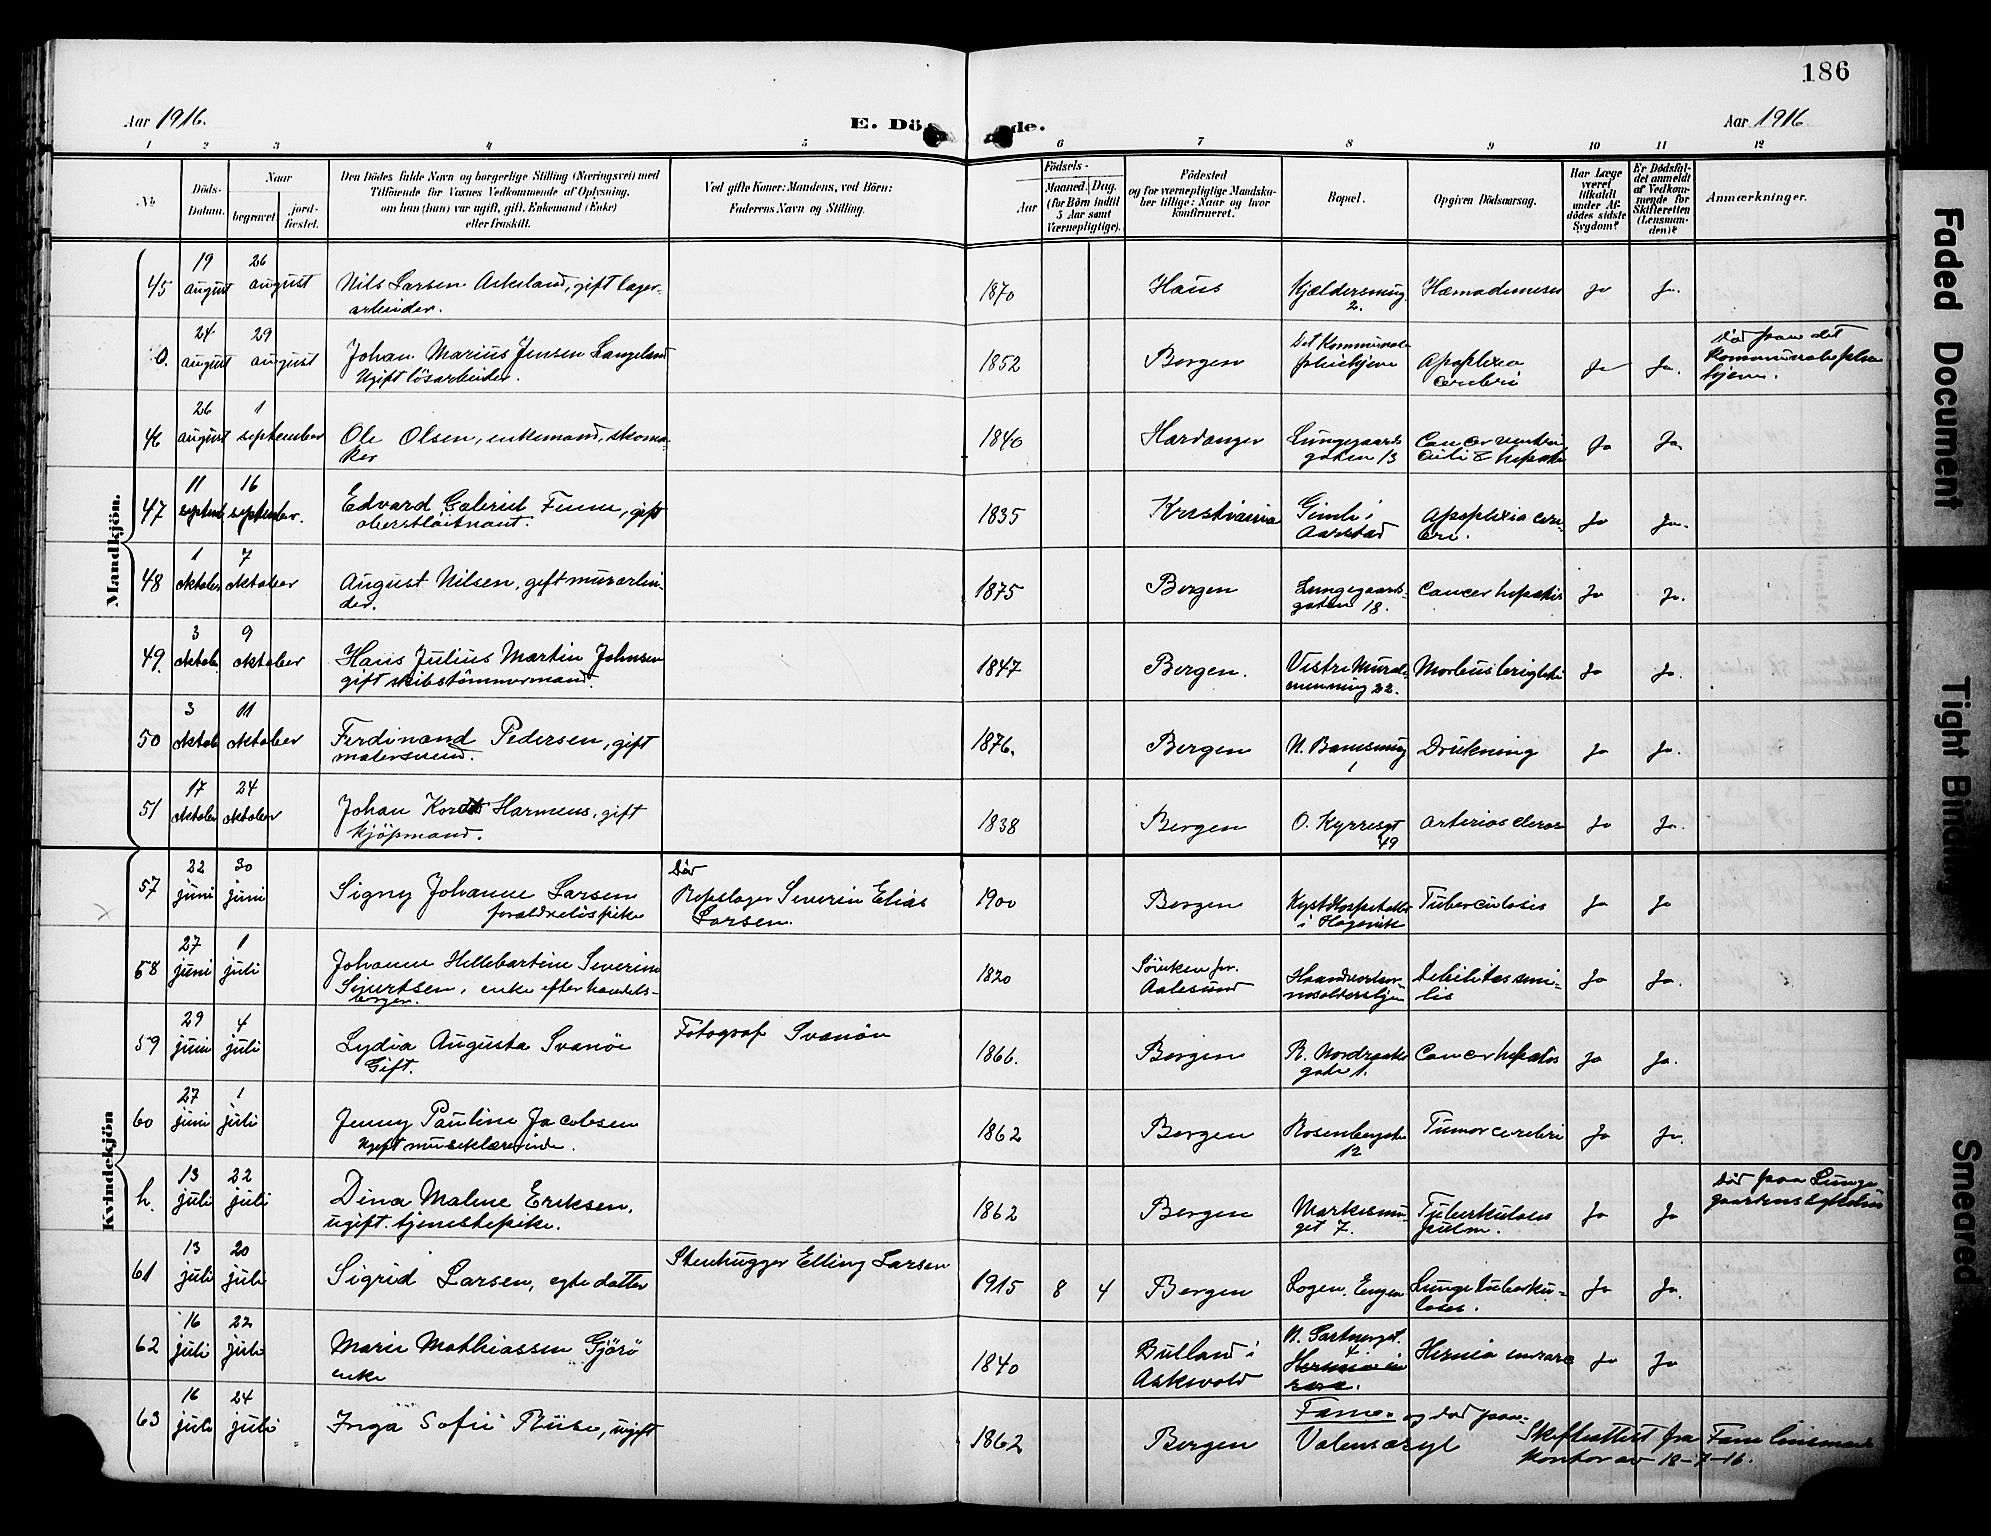 186
Aar 1916.
E. Dö
de.
Aar 1916
1 2 3 4 5 6 7 8 9 10 11 12
No
Döds-
Datum.
Naar
begravet
jord-
fæstet.
Den Dödes fulde Navn og borgerlige Stilling (Næringsvei) med
Tilföiende for Voxnes Vedkommende af Oplysning,
om han (hun) var ugift, gift, Enkemand (Enke)
eller fraskilt.
Ved gifte Koner: Mandens, ved Börn:
Faderens Navn og Stilling.
Födsels-
Aar
Maaned. Dag.
(for Börn indtil
5 Aar samt
Værnepligtige).
Födested
og for værnepligtige Mandska-
ber tillige: Naar og hvor
konfirmeret.
Bopæl.
Opgiven Dödsaarsag.
Har Læge
været
tilkaldt
under Af-
dödes sidste
Sygdom?
Er Dödsfal-
det anmeldt
af Vedkom-
mende for
Skifteretten
(Lensman-
den)?
Anmærkninger.
Mandkjön.
45 19 august 26 august Nils Larsen Askeland, gift lager-
arbeider. 1870 Haus Kjældersmug
2. Hæmademeses Ja Ja.
0. 24 august 29 august Johan Marius Jensen Langeland
Ugift lösarbeider. 1852 Bergen Det Kommunale
pleiehjem Apoplexia
cerebri Ja Ja. Död paa det
Kommunale pleie
hjem.
46 26 august 1 september Ole Olsen, enkemand, skoma-
ker 1840 Hardanger Lungegaards
gaten 13 Cancer ventri
culi & hepatis Ja Ja.
47 11 septemb 16 september. Edvard Gabriel Finne, gift
oberstlöitnant. 1835 Kristiania Gimle i
Aarstad Apoplexia cere-
bri. Ja Ja.
48 1 oktober 7 oktober August Nilsen, gift murarbei-
der. 1875 Bergen Lungegaards-
gaten 18. Cancer hepatis Ja Ja.
49. 3 oktob. 9 oktober Hans Julius Martin Johnsen
gift skibstömmermand. 1847 Bergen. Vestre Mural-
menning 22. Morbus brightii Ja Ja.
50 3 oktob 11 oktober Ferdinand Pedersen, gift
malersvend. 1876. Bergen N. Banesmug
1 Drukning Ja Ja.
51 17 oktober 24 oktober Johan Kordt Harmens, gift
kjöpmand. 1838 Bergen O. Kyrresgt
49 Arterios cleros Ja Ja.
Kvindekjön
57 22 juni 30 juni Signy Johanne Larsen
forældrelös pike Död
Repslager Severin Elias
Larsen. 1900 Bergen Kysthospitalet
i Hagevik Tuberculosis Ja Ja
58 27 juni 1 juli Johanne Hellebartine Severine
Sivertsen, enke efter handels-
borger. 1820 Aalesund Debilitas seni-
lis Ja Ja.
59 29 juni 4 juli Lydia Augusta Svanöe
Gift. Fotograf Svanöe 1866. Bergen R. Nordraaks
gate 1. Cancer hepatis Ja Ja.
60 27 juni 1 juli Jenny Pauline Jacobsen
Ugift musiklærerinde. 1862 Bergen Rosenbergsgt
12 Tumor cerebri Ja Ja.
h. 13 juli 22 juli Dina Malene Eriksen,
ugift tjenestepike. 1862 Bergen Markesmu-
get 7. Tuberkulosis
pulm. Ja Ja Död paa Lunge
gaardens hospital
61 13 juli 20 juli Sigrid Larsen, egte datter Stenhugger Elling Larsen 1915 8 4 Bergen Logen, Engen Lungetuberku-
loses. Ja Ja.
62 16 juli 22 juli Marie Mathiassen Gjörö
enke 1840 Bulland i
Askvold 4 Hernia incarc Ja Ja
63 16 juli 24 juli Inga Sofie Riise, ugift 1862 Bergen Fane. og död paa
Valensasyl Skifteattest fra Fane lensmands
kontor av 18-7-16.
Faded Document
Tight Binding
Smeared